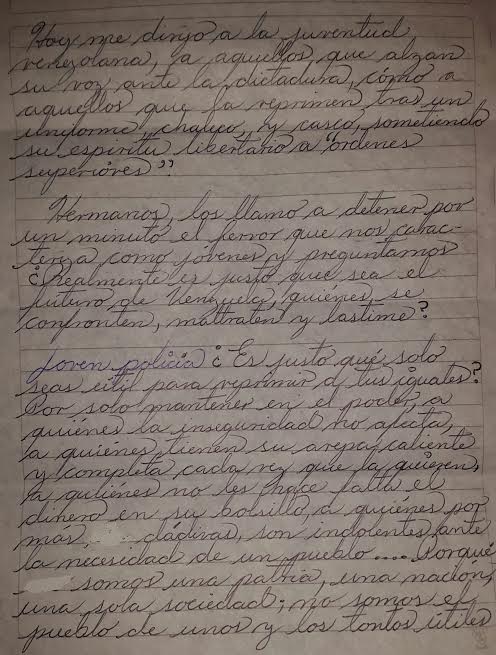 Hoy me dirijo a la juventud
venezolana, a aquellos, que alzan
su voz ante la dictadura, cómo a
aquellos que la reprimen tras un
uniforme, chaleco, y casco, sometiendo
su espiritu libertario a "ordenes
superiores"?
Hermanos, los llamo a detener por
un minuto el fervor que nos carac-
teriza como jóvenes y preguntarnos
¿Realmente es justo que sea el
futuro de Venezuela, quiénes se
confronten, maltraten y lastime?
Joven policía ¿Es justo qué solo
seas útil para reprimir a tus iguales?
Por solo mantener en el poder, a
quiénes la inseguridad no afecta,
a quiénes tienen su arepa caliente
y completa cada vez que la quieren,
a quiénes no les hace falta el
dinero en su bolsillo, a quiénes por
mas dádivas, son indolentes ante
la necesidad de un pueblo.... Porqué
somos una patria, una nación,
una sola sociedad; no somos el
pueblo de unos y los tontos útiles